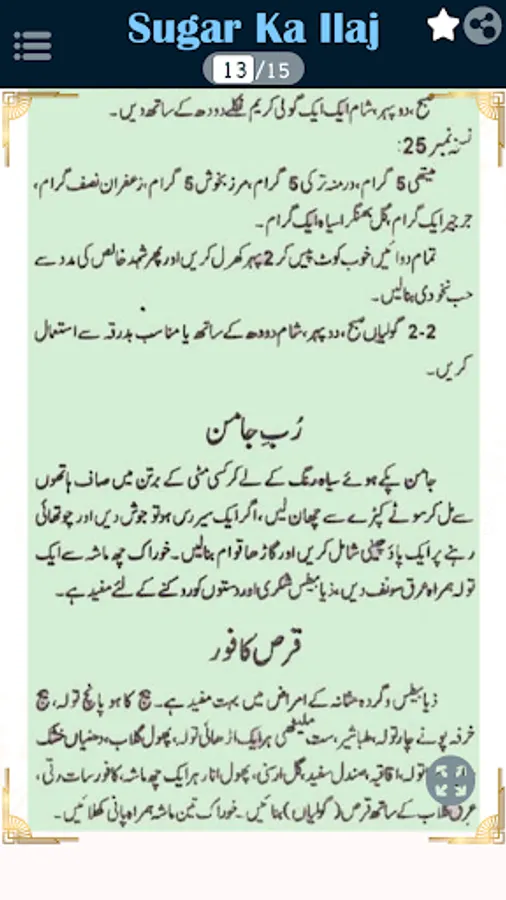 Sugar Ka Ilaj
13/15
صبح، دوپہر، شام ایک ایک گولی کریم نکلے دودھ کے ساتھ دیں۔
نسخہ نمبر 25:
میتھی 5 گرام، درمنہ ترکی 5 گرام، مرزنجوش 5 گرام، زعفران نصف گرام،
جرجیر ایک گرام، گل بھنگرا سیاہ ایک گرام۔
تمام دوائیں خوب کوٹ پیس کر 2 پہر کھرل کریں اور پھر شہد خالص کی مدد سے
حب نخودی بنالیں۔
2-2 گولیاں صبح، دوپہر، شام دودھ کے ساتھ یا مناسب بدرقہ سے استعمال
کریں۔
رُبِ جامن
جامن پکے ہوئے سیاہ رنگ کے لے کر کسی مٹی کے برتن میں صاف ہاتھوں
سے مل کر سوٹے کپڑے سے چھان لیں، اگر ایک سیر رس ہو تو جوش دیں اور چوتھائی
رہنے پر ایک پاؤ چینی شامل کریں اور گاڑھا قوام بنالیں۔ خوراک چھ ماشہ سے ایک
تولہ ہمراہ عرق سونف دیں، ذیابیطس شکری اور دستوں کو روکنے کے لئے مفید ہے۔
قرص کافور
ذیابیطس و گردہ مثانہ کے امراض میں بہت مفید ہے۔ بیج کاہو پانچ تولہ، بیج
خرفہ پونے چار تولہ، طباشیر، ست ملیٹھی ہر ایک اڑھائی تولہ، پھول گلاب، دھنیاں خشک
تولہ، اقاقیہ، صندل سفید، گل ارمنی، پھول انار ہر ایک چھ ماشہ، کافور سات رتی،
عرق گلاب کے ساتھ قرص (گولیاں) بنائیں۔ خوراک تین ماشہ ہمراہ پانی کھلائیں۔